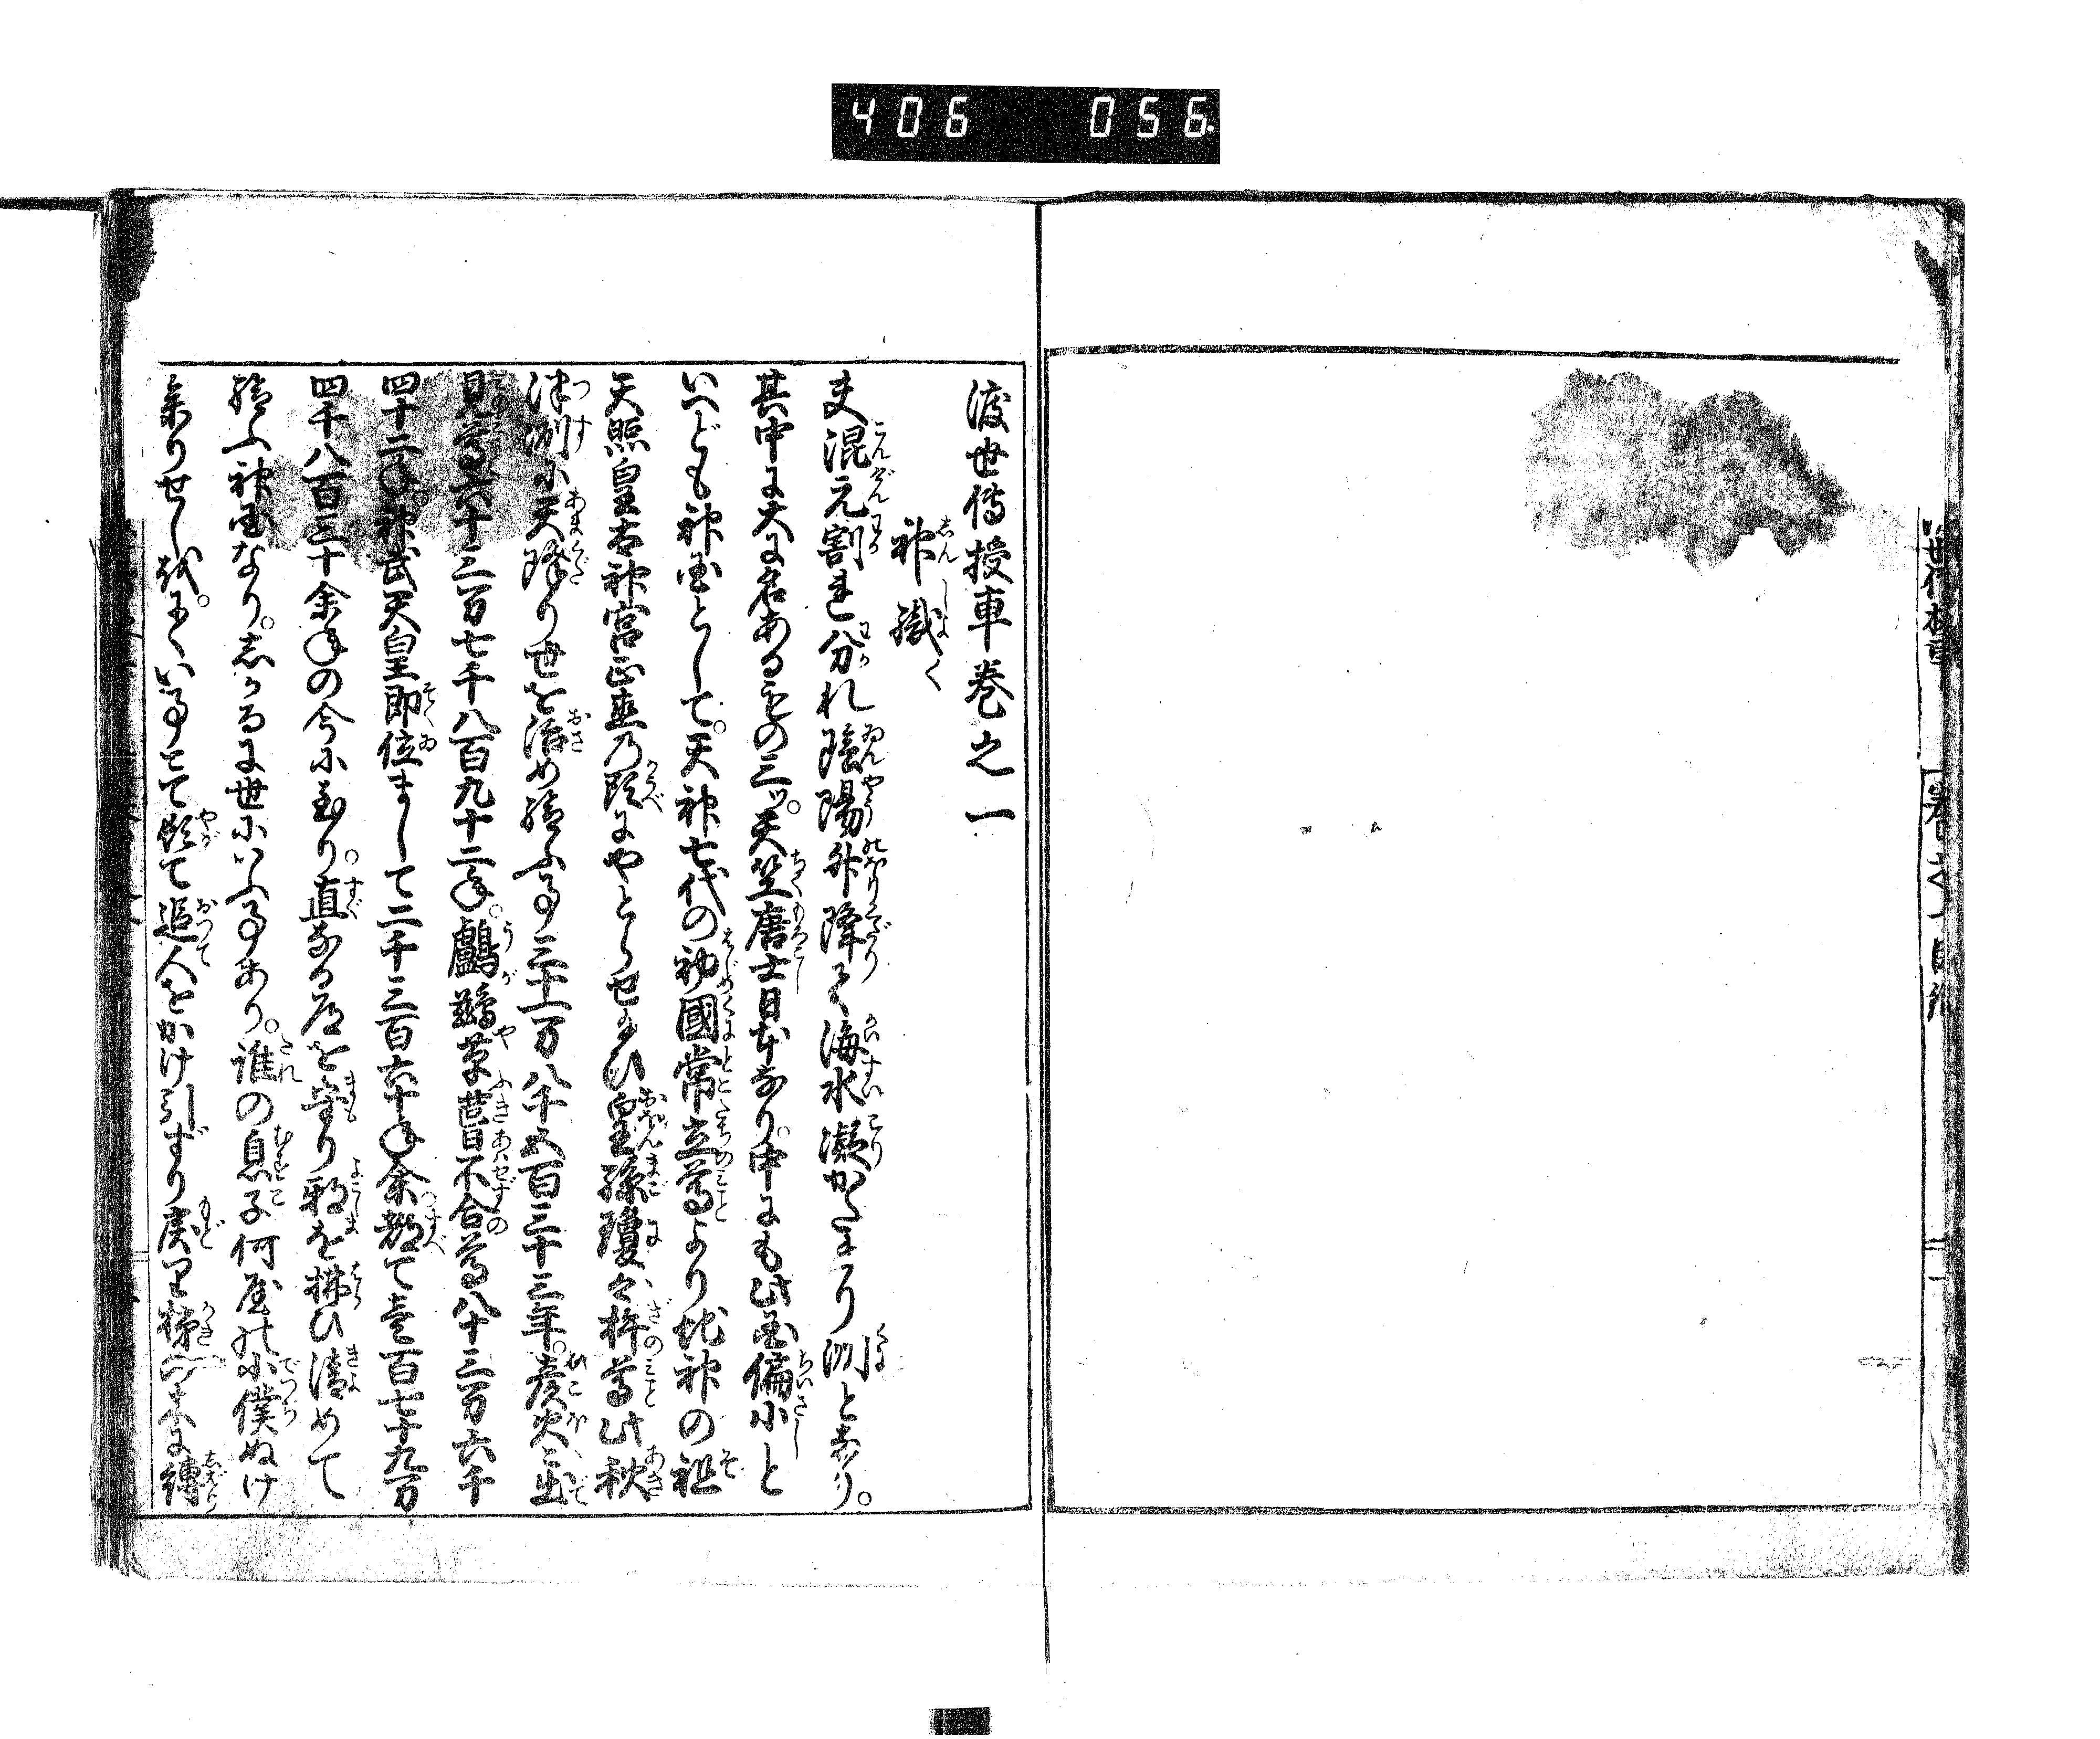 406 056
渡世傳授車巻之一
神職
夫混元割され分れ陰陽升降て海水凝かたまり洲となり。
其中に大に名あるもの三ッ。天竺唐土日本なり。中にも此国偏小と
いへども神国として。天神七代の初國常立尊より地神の祖
天照皇太神宮正直乃頭にやとらせ給ひ皇孫瓊々杵尊此秋
津洲に天降り世を治め給ふ事三十一万八千五百三十三年。彦火々出
見尊六十三万七千八百九十二年。鸕鶿草葺不合尊八十三万六千
四十二年。神武天皇即位まして二千三百六十年余都て壱百七十九万
四千八百三十余年の今に至り。直なる道を守り邪を拂ひ清めて
給ふ神国なり。しかるに世にいふ事あり。誰の息子何屋の小僕ぬけ
参りせしが。にくい事とて頓て追人をかけ引ずり戻り
木に縛